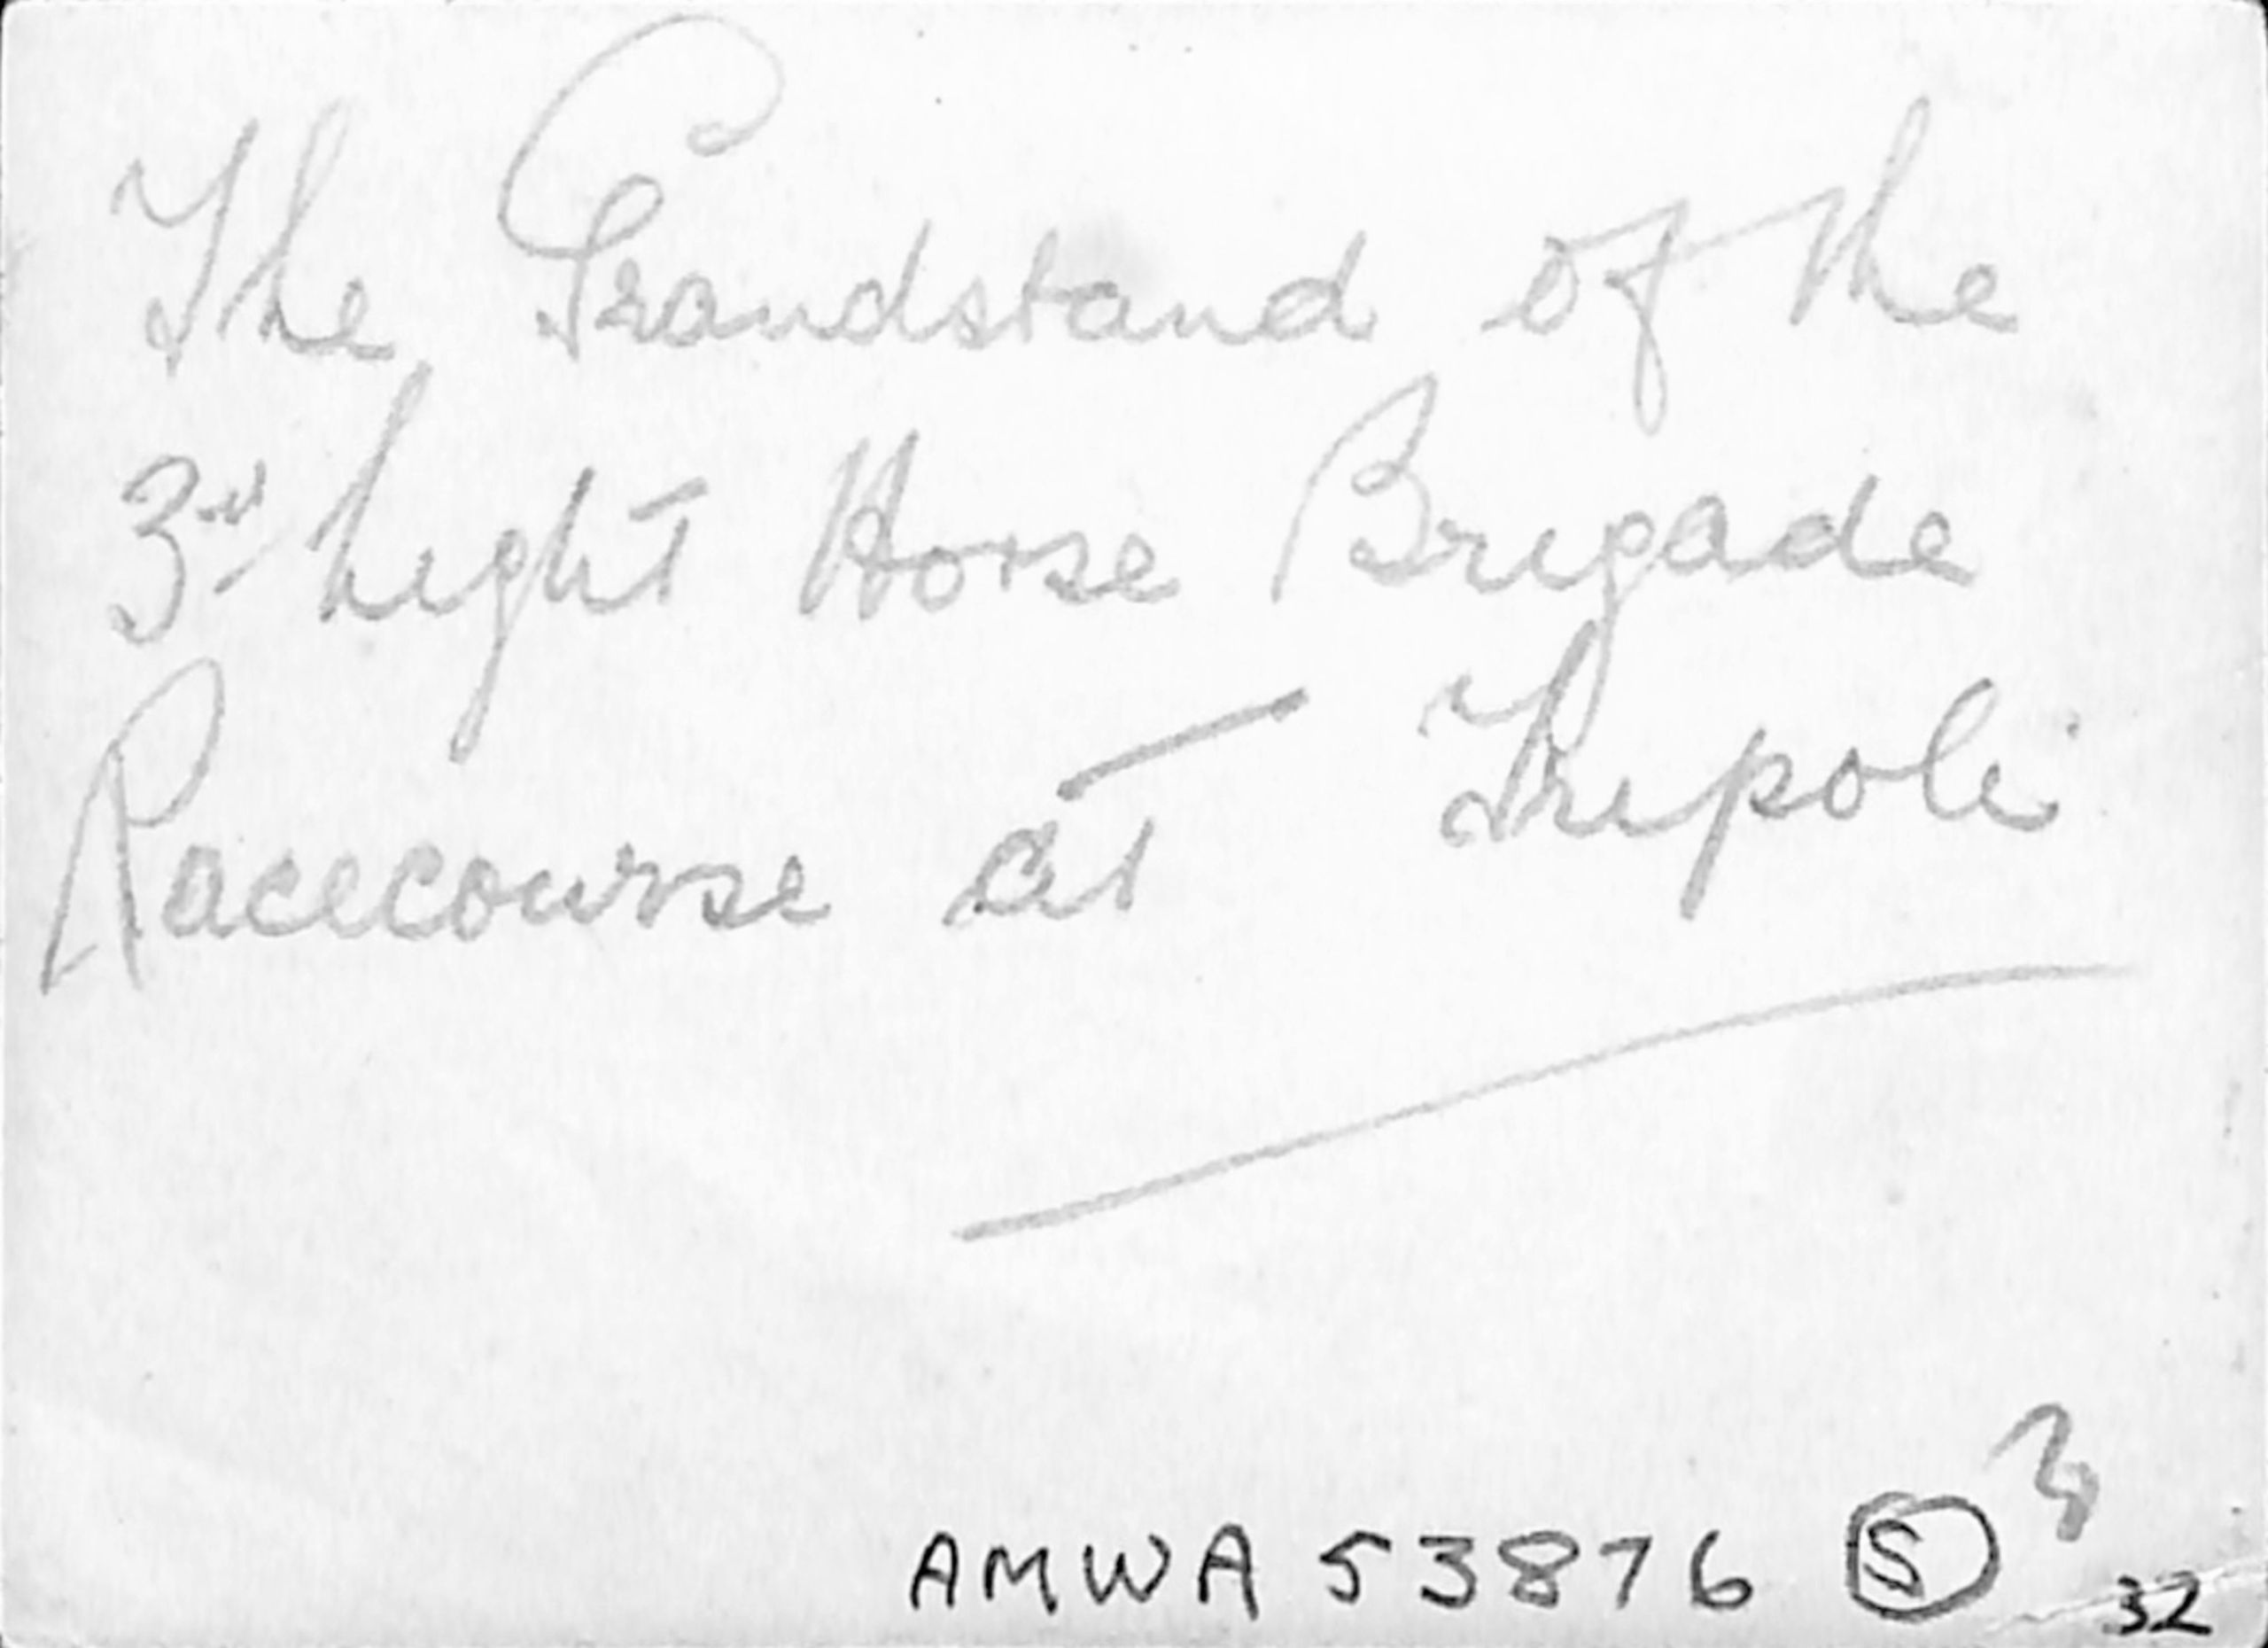 The Grandstand of the
3rd Light Horse Brigade
Racecourse at Tripoli
AMWA 53876 S 3
32